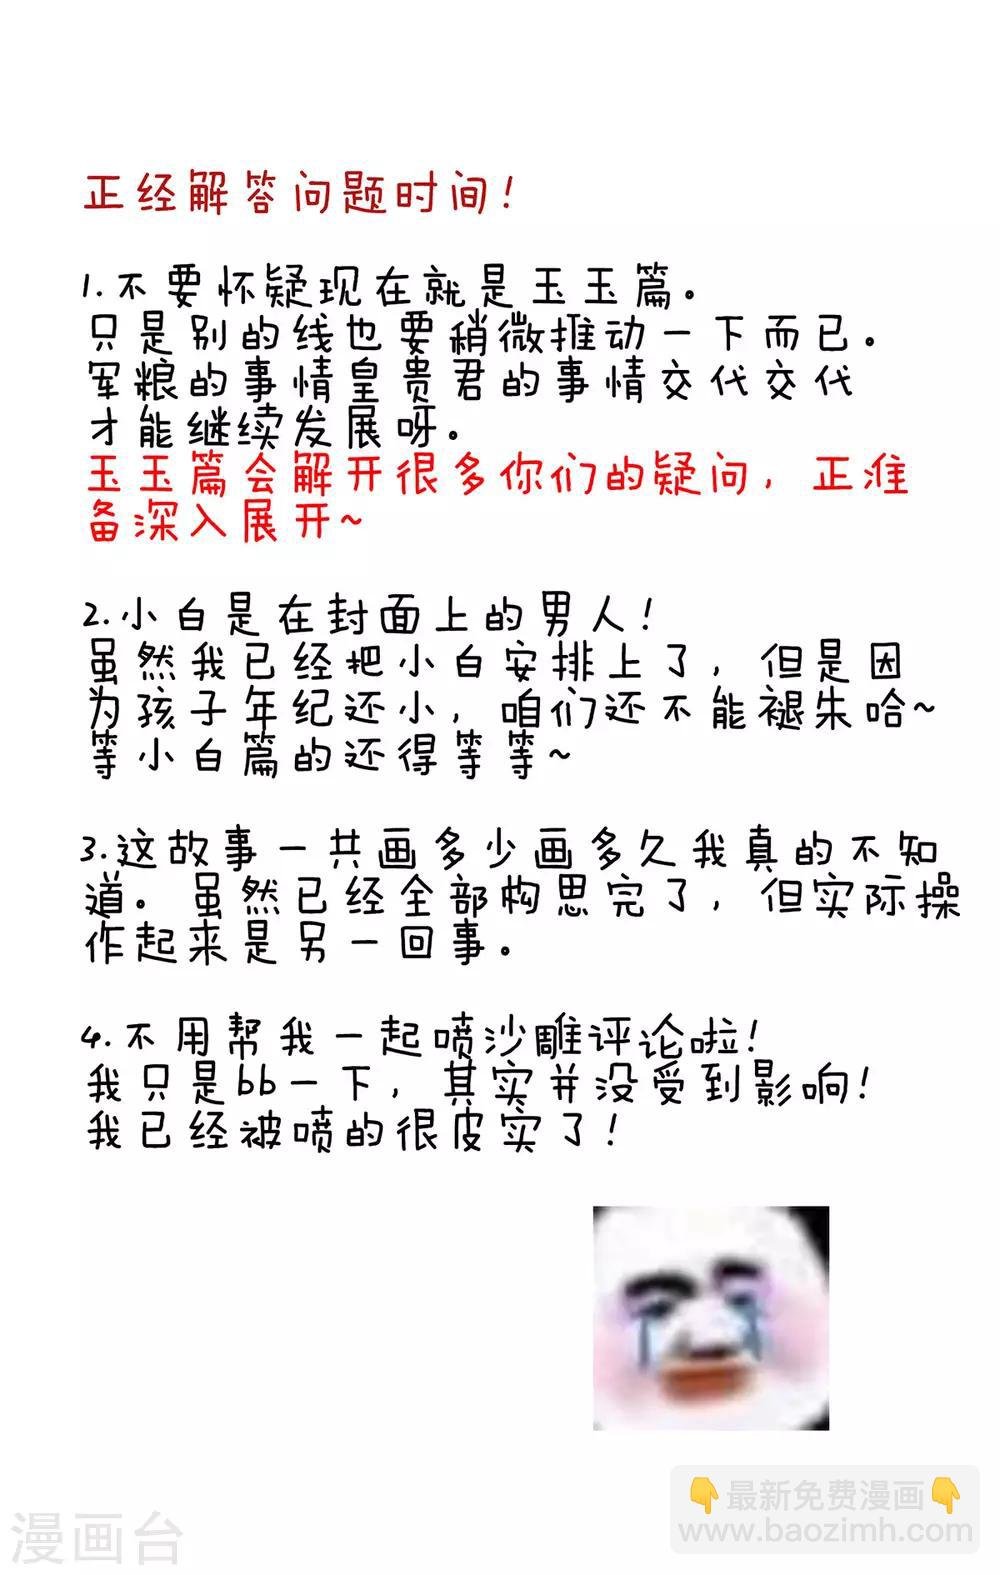 正经解答问题时间!
1.不要怀疑现在就是玉玉篇。
只是别的线也要稍微推动一下而已。
军粮的事情皇贵君的事情交代交代
才能继续发展呀。
玉玉篇会解开很多你们的疑问,正准
备深入展开~
2.小白是在封面上的男人!
虽然我已经把小白安排上了,但是因
为孩子年纪还小,咱们还不能褪朱哈~
等小白篇的还得等等~
3.这故事一共画多少画多久我真的不知
道。虽然已经全部构思完了,但实际操
作起来是另一回事。
4.不用帮我一起喷沙雕评论啦!
我只是bb一下,其实并没受到影响!
我已经被喷的很皮实了!
最新免费漫画
www.baozimh.com
漫画台